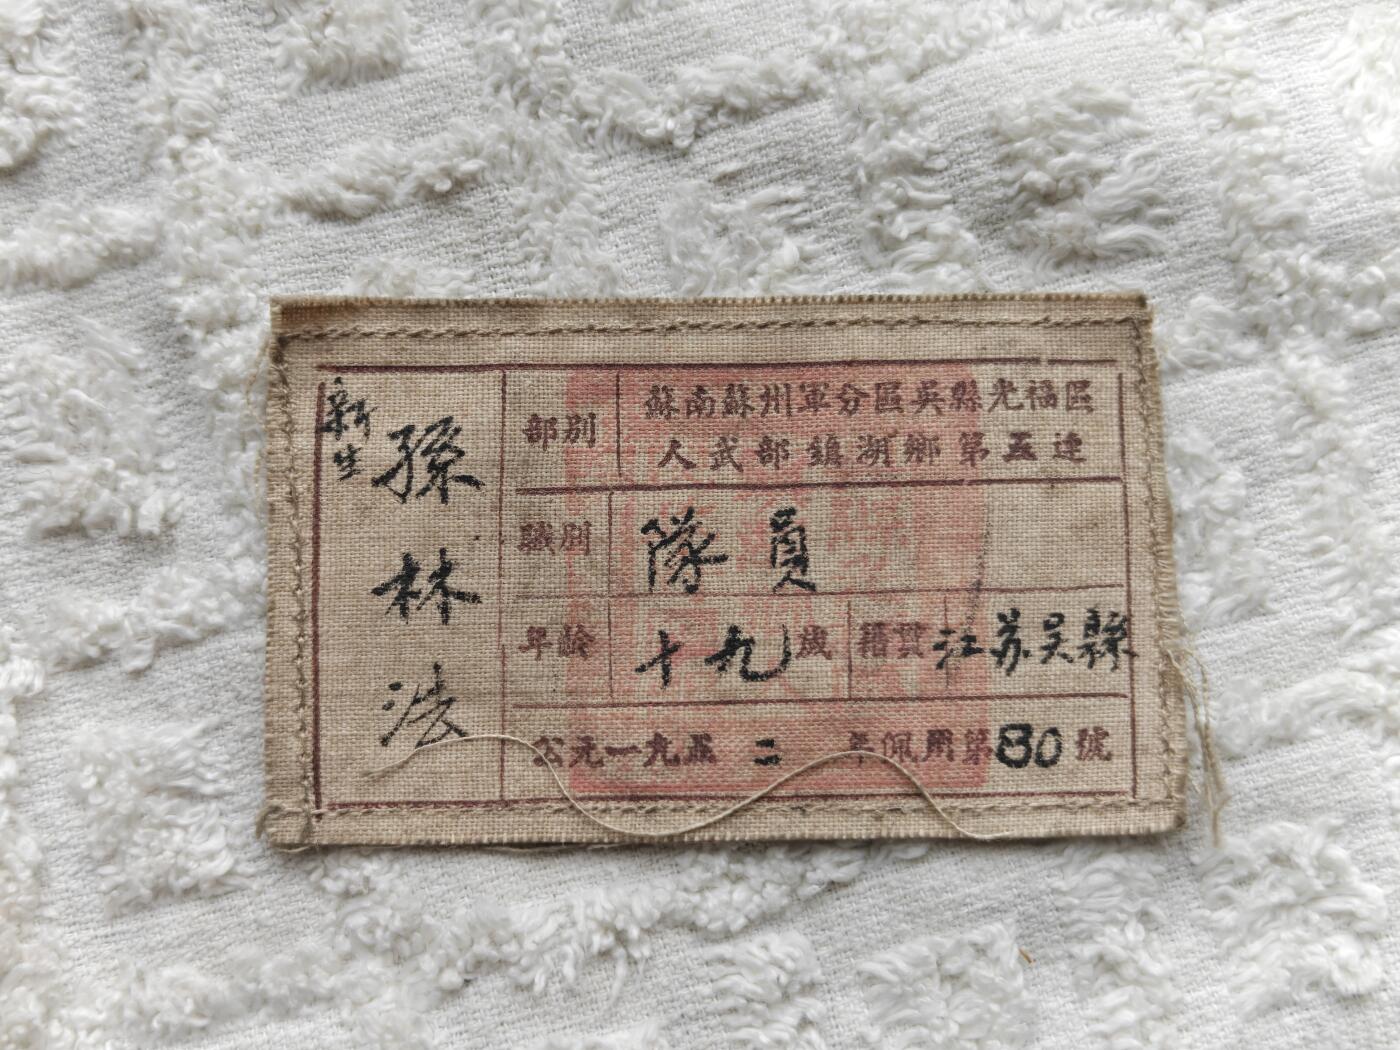 新生
孫林法
部别
蘇南蘇州軍分區吳縣光福區
人武部鎮湖鄉第五連
職別
隊員
年齡
十九歲
籍貫
江苏吴縣
公元一九五二年佩用第80號